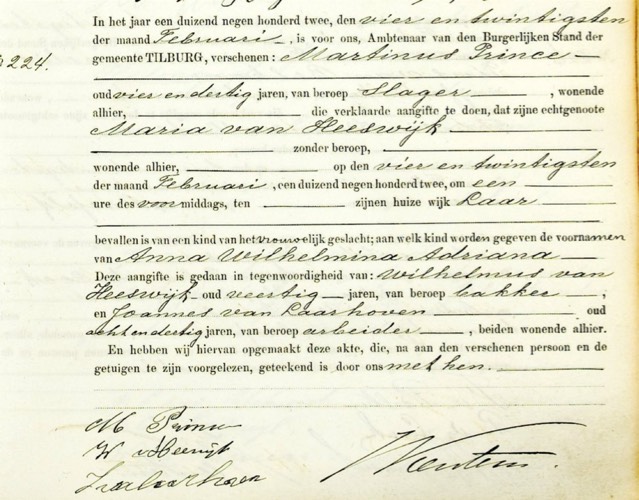 In het jaar een duizend negen honderd twee, den vier en twintigsten
der maand Februari, is voor ons, Ambtenaar van den Burgerlijken Stand der
224.
gemeente TILBURG, verschenen: Martinus Prince
oud vier en dertig jaren, van beroep Slager, wonende
alhier, die verklaarde aangifte te doen, dat zijne echtgenoote
Maria van Heeswijk
zonder beroep,
wonende alhier, op den vier en twintigsten
der maand Februari, een duizend negen honderd twee, om een
ure des voormiddags, ten zijnen huize wijk Laar
bevallen is van een kind van het vrouwelijk geslacht; aan welk kind worden gegeven de voornamen
van Anna Wilhelmina Adriana
Deze aangifte is gedaan in tegenwoordigheid van: Wilhelmus van
Heeswijk oud veertig jaren, van beroep bakker,
en Joannes van Laarhoven oud
acht en dertig jaren, van beroep arbeider, beiden wonende alhier.
En hebben wij hiervan opgemaakt deze akte, die, na aan den verschenen persoon en de
getuigen te zijn voorgelezen, geteekend is door ons met hen.
M Prince
W v Heeswijk